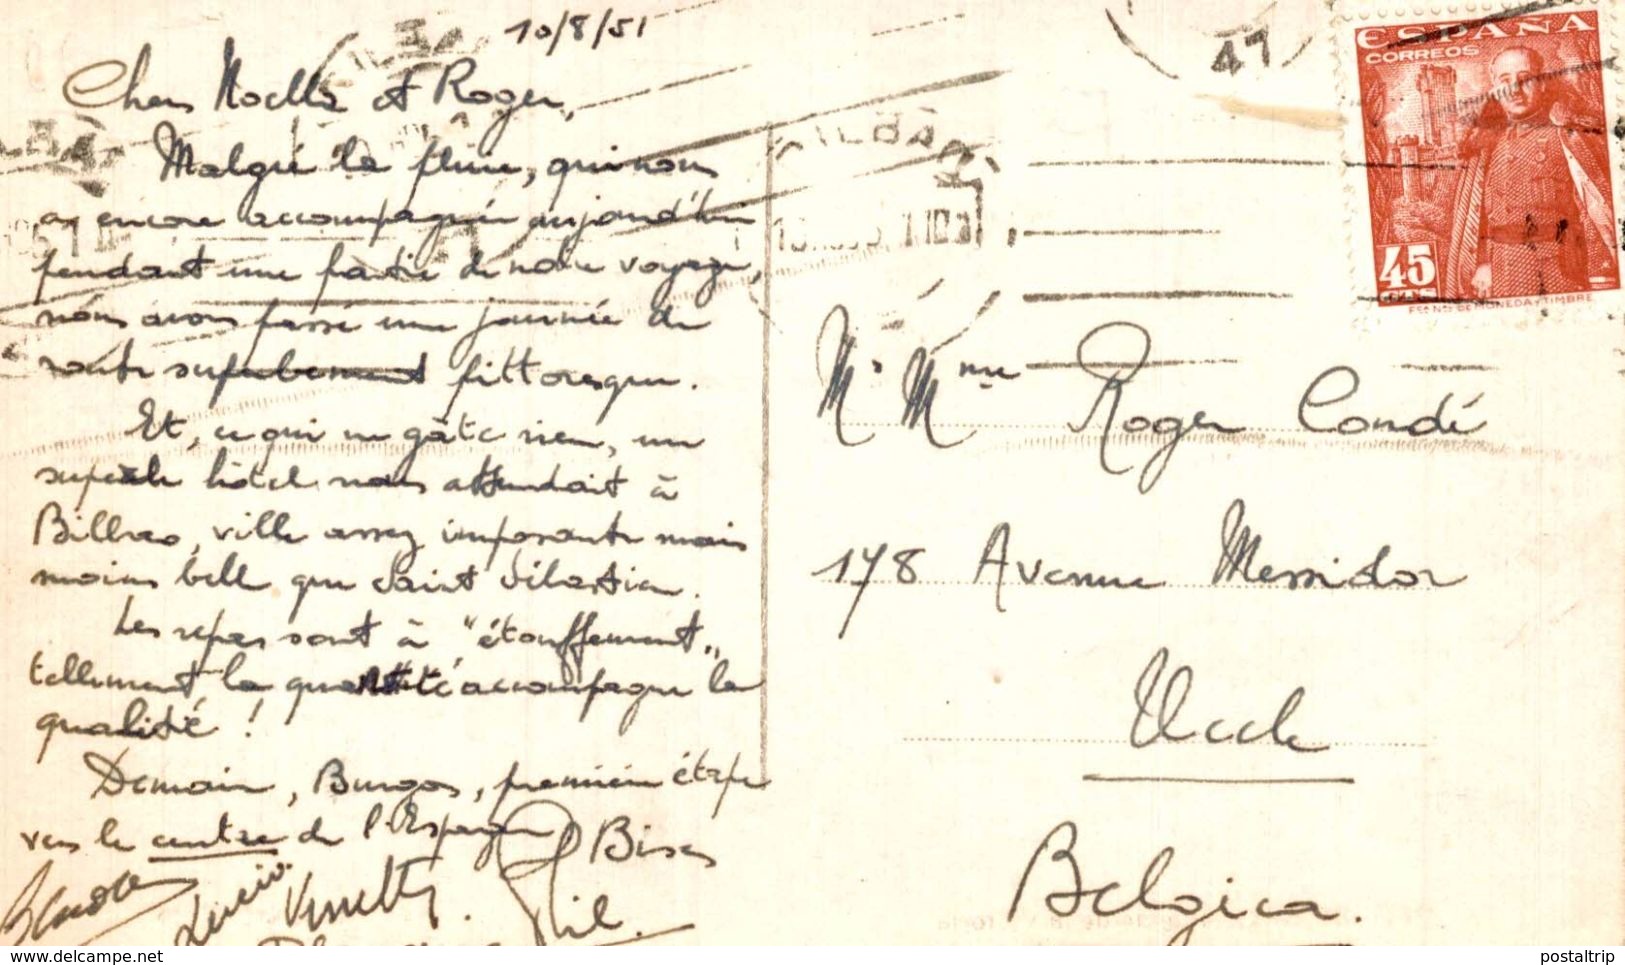 10/8/51
Chers Noella et Roger,
Malgré la pluie, qui nous
a encore accompagnés aujourd'hui
pendant une partie de notre voyage,
nous avons passé une journée de
route superbement pittoresque.
Et, ce qui ne gâte rien, un
superbe hôtel nous attendait à
Bilbao, ville assez importante mais
moins belle que Saint Sébastien.
Les repas sont à "étouffement"
tellement la quantité accompagne la
qualité !
Demain, Burgos, première étape
vers le centre de l'Espagne
Bises
47
BILBAO
ESPAÑA
CORREOS
45
CTS
FCA NAL DE MONEDA Y TIMBRE
Mr Mme Roger Condé
178 Avenue Messidor
Uccle
Belgica.
www.delcampe.net
postaltrip